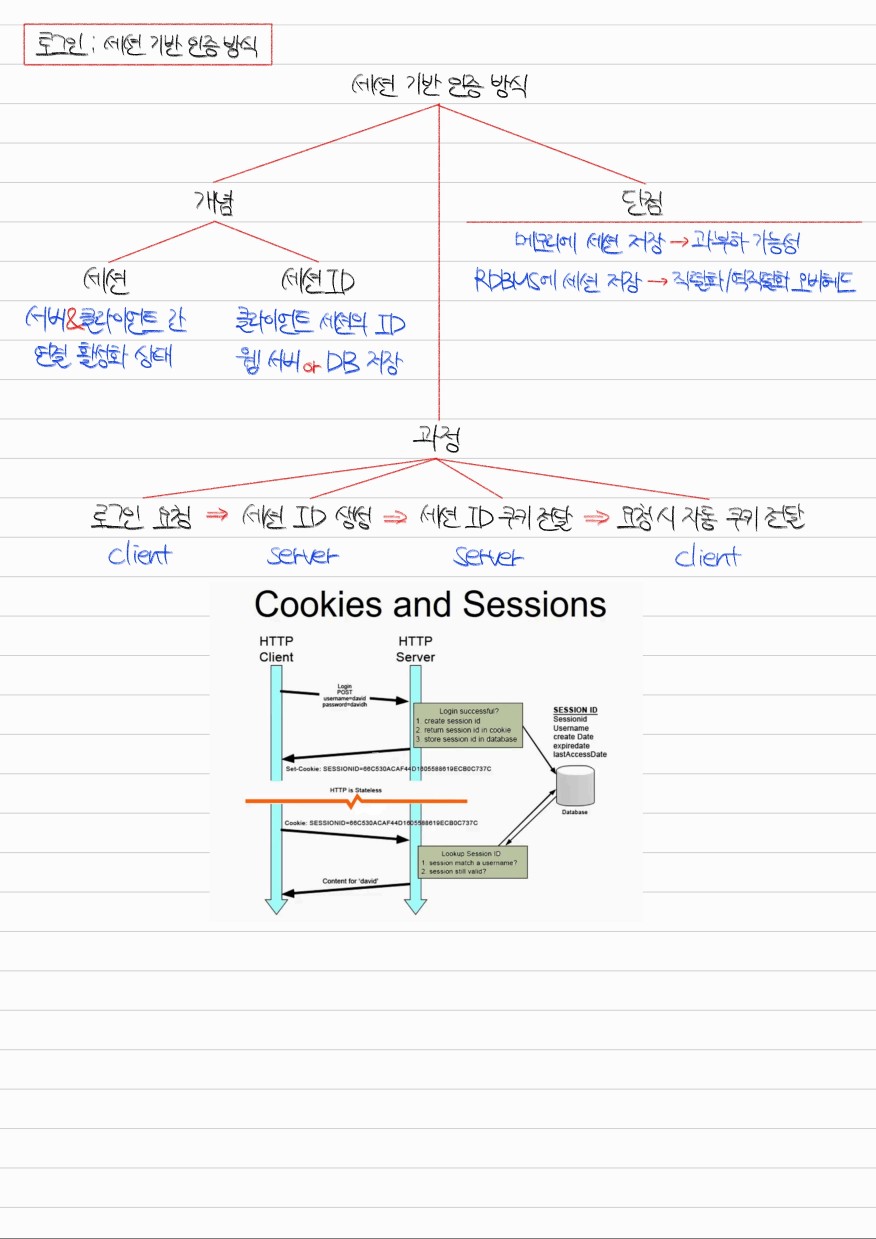 로그인 : 세션 기반 인증 방식
세션 기반 인증 방식
개념
단점
메모리에 세션 저장 → 과부하 가능성
RDBMS에 세션 저장 → 직렬화/역직렬화 오버헤드
세션
세션 ID
서버&클라이언트 간
연결 활성화 상태
클라이언트 세션의 ID
웹 서버 or DB 저장
과정
로그인 요청 ⇒ 세션 ID 생성 ⇒ 세션 ID 쿠키 전달 ⇒ 요청 시 자동 쿠키 전달
client server server client
Cookies and Sessions
HTTP
Client
HTTP
Server
Login
POST
username=david
password=davidh
Login successful?
1. create session id
2. return session id in cookie
3. store session id in database
SESSION ID
Sessionid
Username
create Date
expiredate
lastAccessDate
Database
Set-Cookie: SESSIONID=66C530ACAF44D1605588619ECB0C737C
HTTP is Stateless
Cookie: SESSIONID=66C530ACAF44D1605588619ECB0C737C
Lookup Session ID
1. session match a username?
2. session still valid?
Content for 'david'